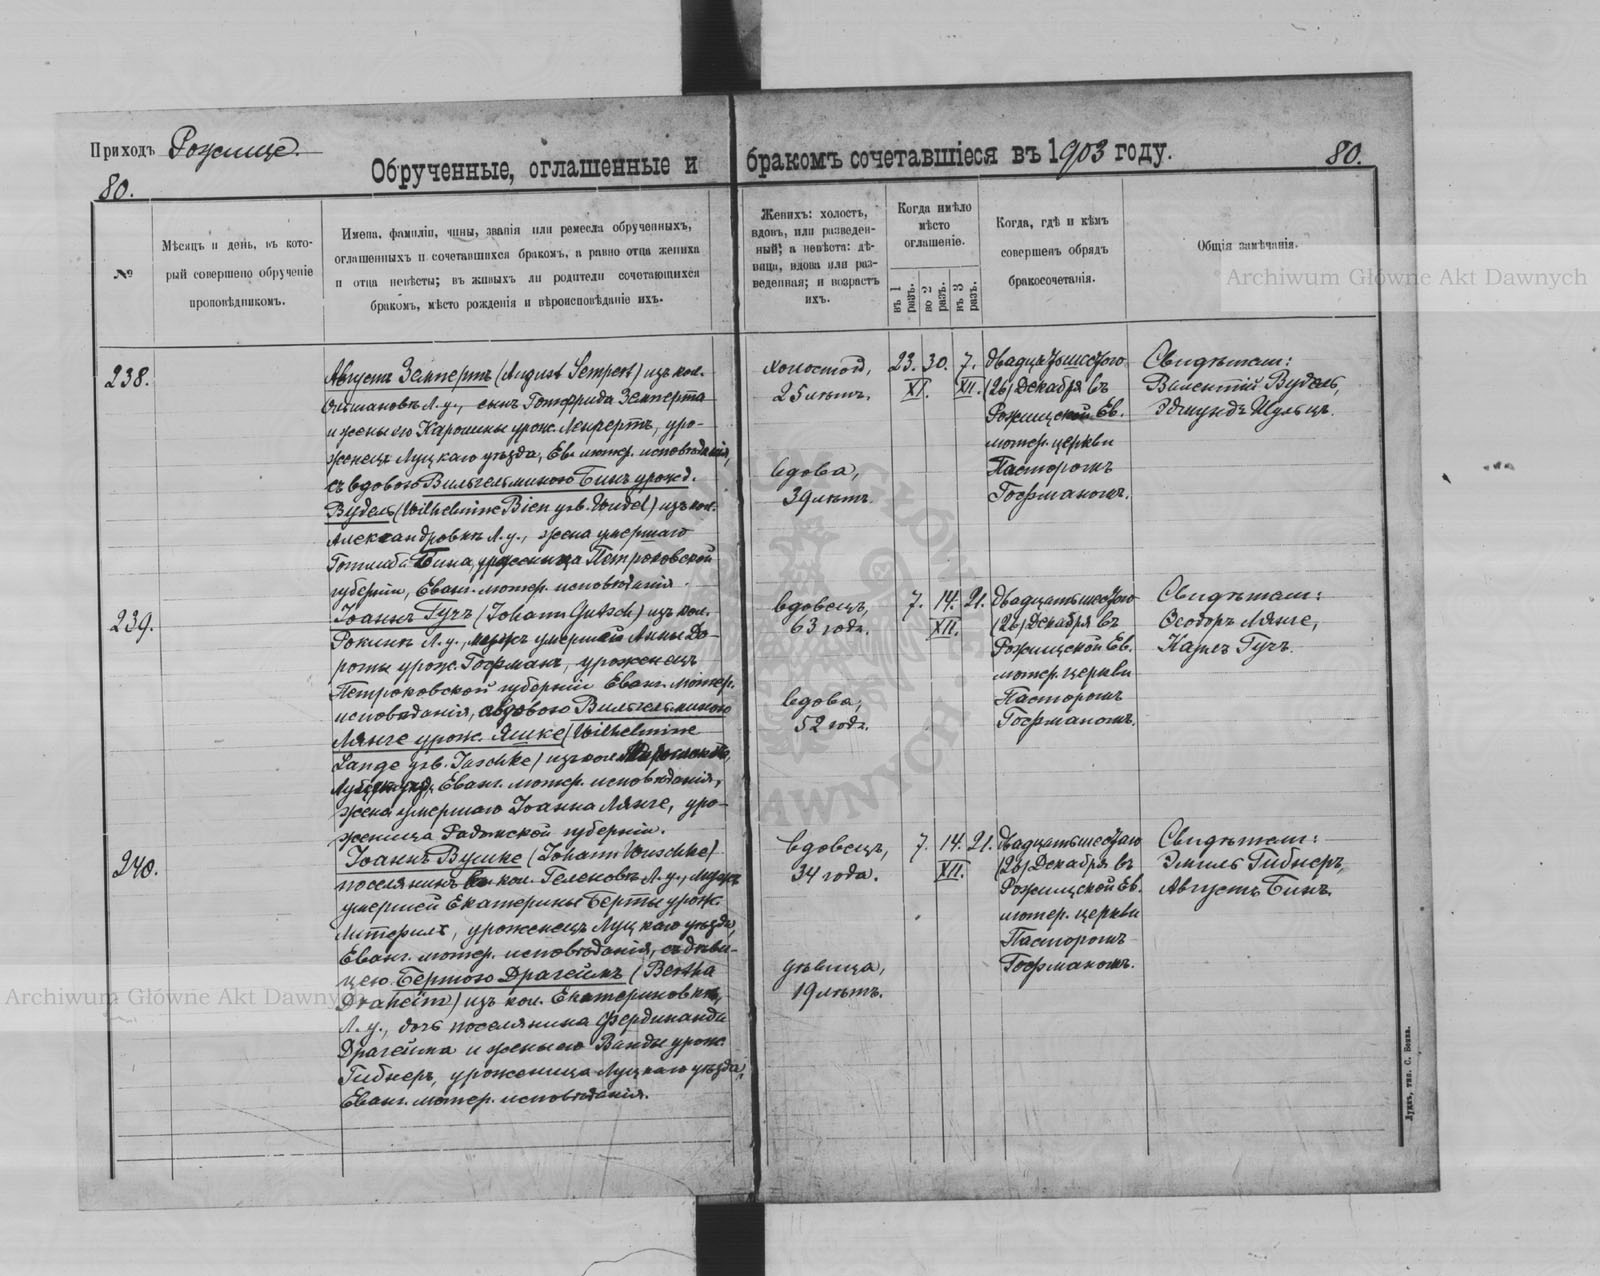 Приходъ Рожище.
80.
Обрученные, оглашенные и бракомъ сочетавшіеся въ 1903 году.
80.
№
Мѣсяцъ и день, въ кото-
рый совершено обрученіе
проповѣдникомъ.
Имена, фамиліи, чины, званія или ремесла обрученныхъ,
оглашенныхъ и сочетавшихся бракомъ, а равно отца жениха
и отца невѣсты; въ живыхъ ли родители сочетающихся
бракомъ, мѣсто рожденія и вѣроисповѣданіе ихъ.
Женихъ: холостъ,
вдовъ, или разведен-
ный; а невѣста: дѣ-
вица, вдова или раз-
веденная; и возрастъ
ихъ.
Когда имѣло
мѣсто
оглашеніе.
въ 1 разъ.
во 2 разъ.
въ 3 разъ.
Когда, гдѣ и кѣмъ
совершенъ обрядъ
бракосочетанія.
Общія замѣчанія.
Archiwum Główne Akt Dawnych
238.
Августъ Земпертъ (August Sempert) изъ кол.
Л. у., сынъ Готфрида Земперта
и жены его Каролины урож. Ленертъ, уро-
женецъ Луцкаго уѣзда, Ев. лютер. исповѣданія,
съ вдовою Вильгельминою Бинъ урожд.
Вудель (Wilhelmine Bien geb. Wudel) изъ кол.
Александровки Л. у., жена умершаго
Готлиба Бина, уроженица Петроковской
губерніи, Еванг. лютер. исповѣданія.
холостой,
25 лѣтъ.
вдова,
39 лѣтъ.
23. 30. 7.
XI. XII.
Двадцать шестого
(26) Декабря въ
Рожищской Ев.
лютер. церкви
Пасторомъ
Гофманомъ.
Свидѣтели:
Валентій Вудель,
Эдмундъ Шульцъ.
239.
Іоаннъ Гучъ (Johann Gutsch) изъ кол.
Рокини Л. у., мужъ умершей Анны До-
роты урож. Гофманъ, уроженецъ
Петроковской губерніи Еванг. лютер.
исповѣданія, съ вдовою Вильгельминою
Лянге урож. Яшке (Wilhelmine
Lange geb. Jaschke) изъ кол.
Еванг. лютер. исповѣданія,
жена умершаго Іоанна Лянге, уро-
женица Радомской губерніи.
вдовецъ,
63 года.
вдова,
52 года.
7. 14. 21.
XII.
Двадцать шестого
(26) Декабря въ
Рожищской Ев.
лютер. церкви
Пасторомъ
Гофманомъ.
Свидѣтели:
Ѳеодоръ Лянге,
Карлъ Гучъ.
240.
Іоаннъ Вушке (Johann Wuschke)
поселянинъ кол. Геленовки Л. у., мужъ
умершей Екатерины Берты урож.
уроженецъ Луцкаго уѣзда,
Еванг. лютер. исповѣданія, съ дѣви-
цею Бертою Драгеймъ (Bertha
Draheim) изъ кол. Екатериновки,
Л. у., дочь поселянина Фердинанда
Драгейма и жены его Ванды урож.
Гибнеръ, уроженица Луцкаго уѣзда,
Еванг. лютер. исповѣданія.
вдовецъ,
34 года.
дѣвица,
19 лѣтъ.
7. 14. 21.
XII.
Двадцать шестого
(26) Декабря въ
Рожищской Ев.
лютер. церкви
Пасторомъ
Гофманомъ.
Свидѣтели:
Эмиль Гибнеръ,
Августъ Бинъ.
Archiwum Główne Akt Dawnych